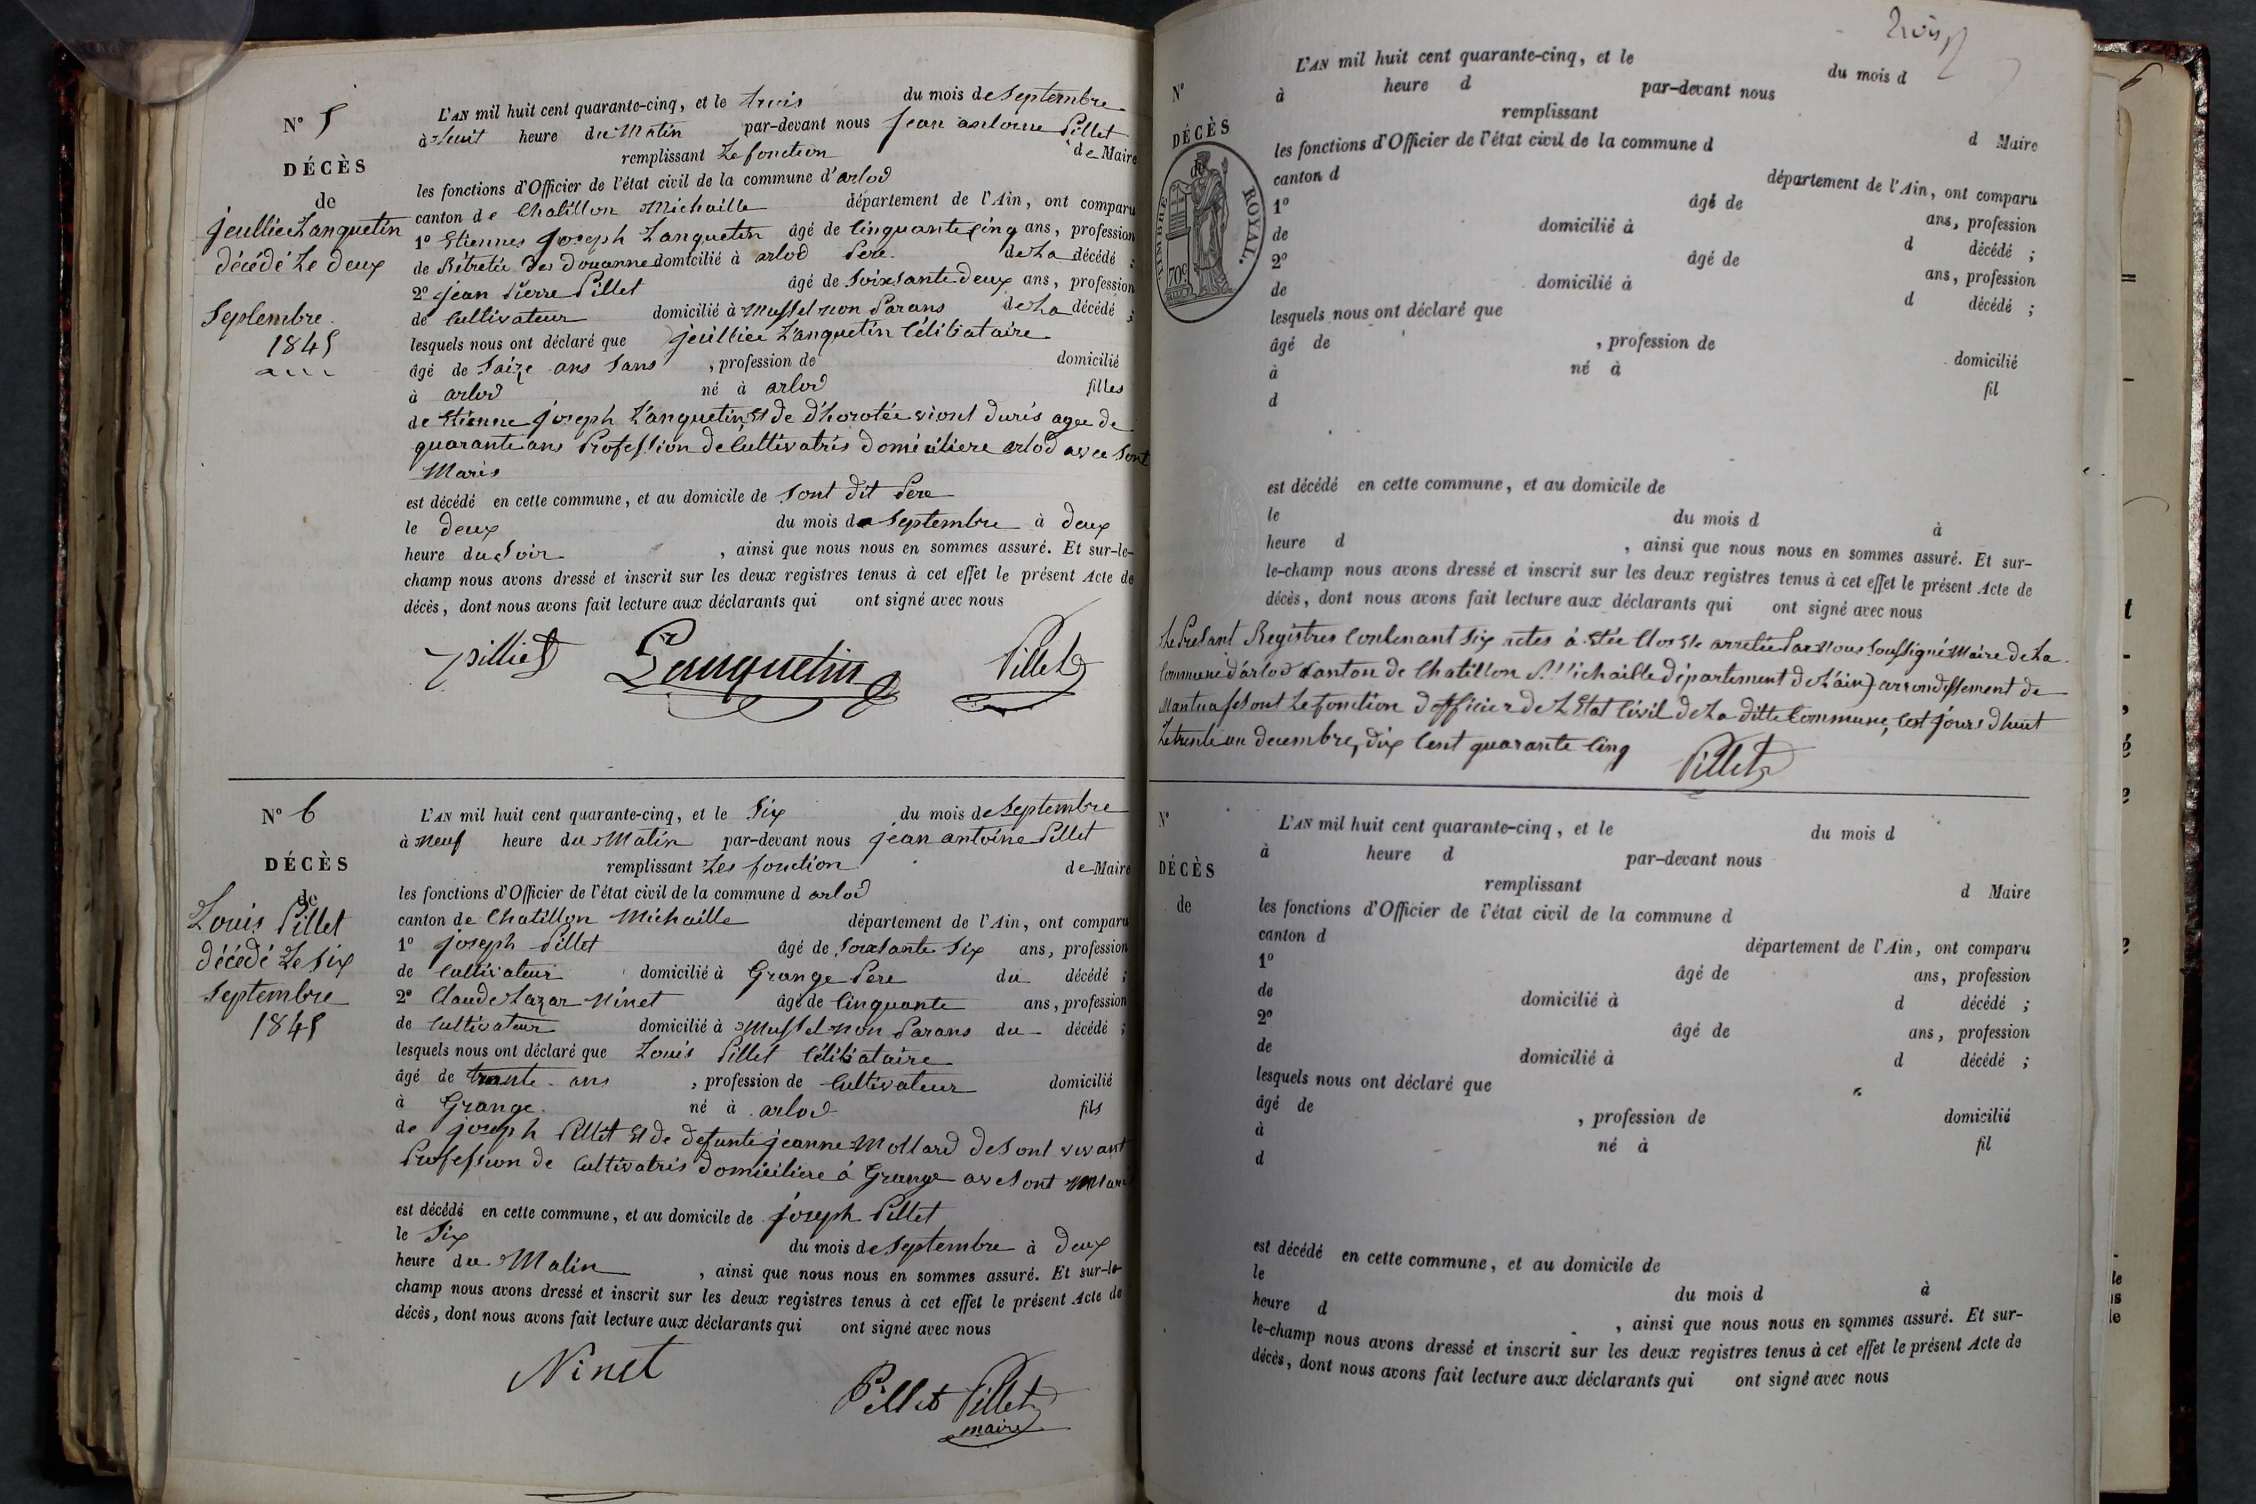 N° 5
DÉCÈS
de
jeulliee Lanquetin
décédé Le deux
Septembre
1845
L'AN mil huit cent quarante-cinq, et le trois du mois de Septembre
à huit heure du Matin par-devant nous jean antoine Pillet
remplissant Le fonction de Maire
les fonctions d'Officier de l'état civil de la commune d'arlod
canton de Chatillon Michaille département de l'Ain, ont comparu
1° Etiennes Joseph Lanquetin âgé de Cinquante Cinq ans, profession
de Rétretée des douanne domicilié à arlod Pere de La décédé ;
2° jean Pierre Pillet âgé de Soixsante deux ans, profession
de Cultivateur domicilié à Mussel non Parans de La décédé ;
lesquels nous ont déclaré que jeulliee Lanquetin Célibataire
âgé de Saize ans Sans , profession de domicilié
à arlod né à arlod filles
de Etienne joseph Lanquetin, Et de d'horotée viont durés agee de
quarante ans Profession de Cultivatris domiciliere arlod avec Sont
Maris
est décédé en cette commune, et au domicile de Sont dit Pere
le deux du mois de Septembre à deux
heure du Soir , ainsi que nous nous en sommes assuré. Et sur-le-
champ nous avons dressé et inscrit sur les deux registres tenus à cet effet le présent Acte de
décès, dont nous avons fait lecture aux déclarants qui ont signé avec nous
pilliet Lanquetin Pillet
N° 6
DÉCÈS
de
Louis Pillet
décédé Le Six
Septembre
1845
L'AN mil huit cent quarante-cinq, et le Six du mois de Septembre
à Neuf heure du Matin par-devant nous jean antoine Pillet
remplissant Les fonction de Maire
les fonctions d'Officier de l'état civil de la commune d arlod
canton de Chatillon Michaille département de l'Ain, ont comparu
1° joseph Pillet âgé de Soixsante Six ans, profession
de Cultivateur domicilié à Grange Pere du décédé ;
2° Claude Lazar Ninet âgé de Cinquante ans, profession
de Cultivateur domicilié à Mussel non Parans du décédé ;
lesquels nous ont déclaré que Louis Pillet Célibataire
âgé de trante ans , profession de Cultivateur domicilié
à Grange né à arlod fils
de joseph Pillet Et de defunte jeanne Mollard de Sont vivant
Profession de Cultivatris domiciliere á Grange ave Sont Mari
est décédé en cette commune, et au domicile de joseph Pillet
le Six du mois de Septembre à deux
heure du Matin , ainsi que nous nous en sommes assuré. Et sur-le-
champ nous avons dressé et inscrit sur les deux registres tenus à cet effet le présent Acte de
décès, dont nous avons fait lecture aux déclarants qui ont signé avec nous
Ninet
Pillet Pillet
maire
trois
N°
DÉCÈS
de
TIMBRE ROYAL.
70c
L'AN mil huit cent quarante-cinq, et le du mois d
à heure d par-devant nous
remplissant d Maire
les fonctions d'Officier de l'état civil de la commune d
canton d département de l'Ain, ont comparu
1° âgé de ans, profession
de domicilié à d décédé ;
2° âgé de ans, profession
de domicilié à d décédé ;
lesquels nous ont déclaré que
âgé de , profession de domicilié
à né à fil
d
est décédé en cette commune, et au domicile de
le du mois d à
heure d , ainsi que nous nous en sommes assuré. Et sur-
le-champ nous avons dressé et inscrit sur les deux registres tenus à cet effet le présent Acte de
décès, dont nous avons fait lecture aux déclarants qui ont signé avec nous
Le Presant Registres Contenant Six actes á Etée Clos Et arretée Par Nous Soussigné Maire de La
Commune d'arlod Canton de Chatillon Michaille département de L'ain, arrondissement de
Mantua fesont Le fonction d'officier de L'Etat Civil de La ditte Commune, Cest jours dhuit
Le trente un decembre, dix Cent quarante Cinq Pillet
N°
DÉCÈS
de
L'AN mil huit cent quarante-cinq, et le du mois d
à heure d par-devant nous
remplissant d Maire
les fonctions d'Officier de l'état civil de la commune d
canton d département de l'Ain, ont comparu
1° âgé de ans, profession
de domicilié à d décédé ;
2° âgé de ans, profession
de domicilié à d décédé ;
lesquels nous ont déclaré que
âgé de , profession de domicilié
à né à fil
d
est décédé en cette commune, et au domicile de
le du mois d à
heure d , ainsi que nous nous en sommes assuré. Et sur-
le-champ nous avons dressé et inscrit sur les deux registres tenus à cet effet le présent Acte de
décès, dont nous avons fait lecture aux déclarants qui ont signé avec nous